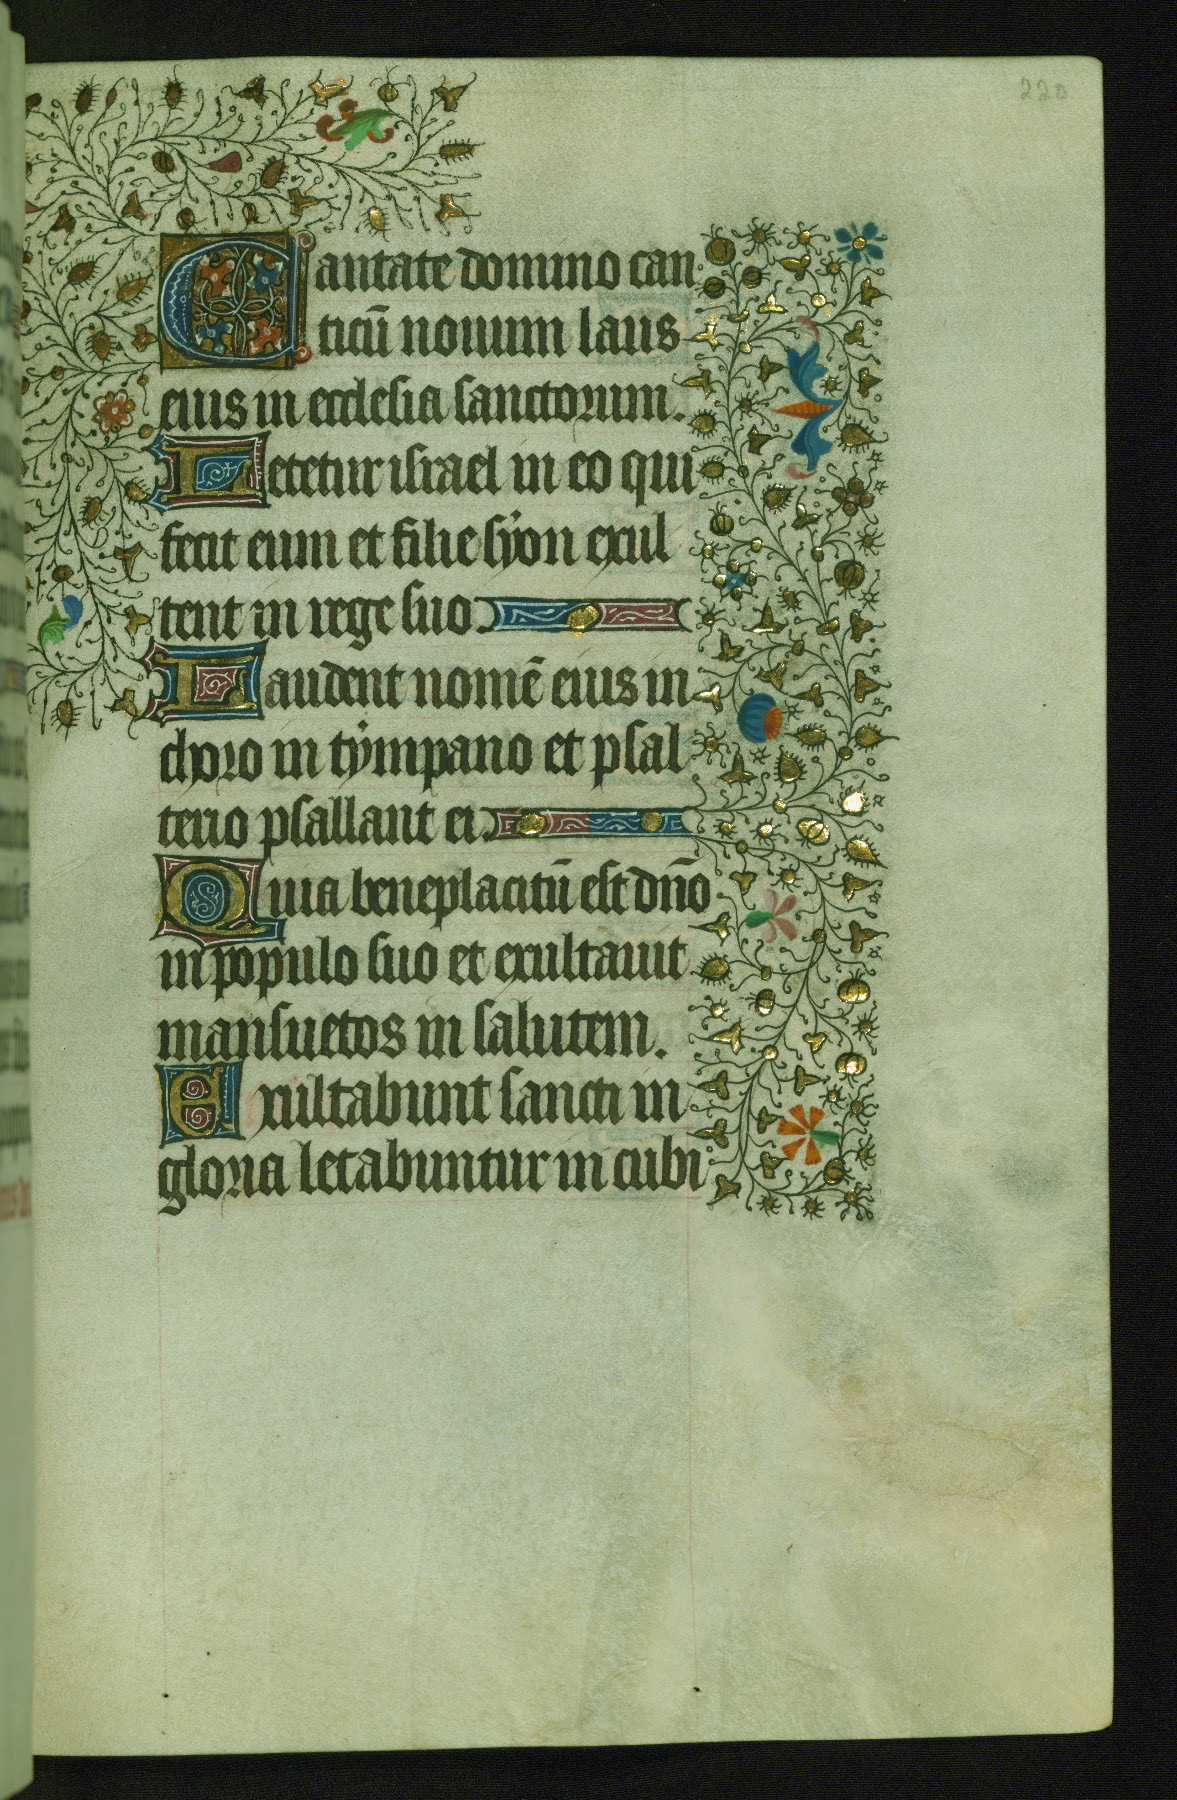 220
Cantate domino can
ticū nouum laus
eius in ecclesia sanctorum.
Letetur israel in eo qui
fecit eum et filie syon exul
tent in rege suo
Laudent nomē eius in
choro in tympano et psal
terio psallant ei
Quia beneplacitū est dn̄o
in populo suo et exultauit
mansuetos in salutem.
Exultabunt sancti in
gloria letabuntur in cubi